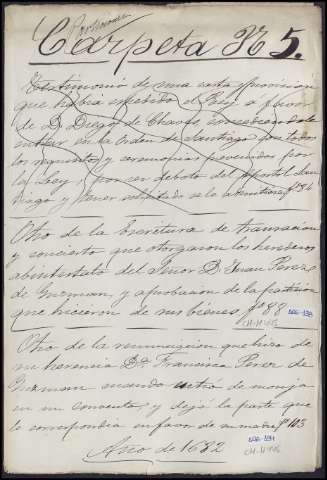 Carpeta N 5.
Testimonio de una carta y provision
que habia expedido el Rey a favor
de D. Diego de Chaves concediendole
entrar en la Orden de Santiago con todos
los requisitos y ceremonias prevenidos por
la Ley, por ser devoto del Apostol San
tiago y haver solicitado se le admitiera fº 54
Otro de la Escritura de transacion
y concierto que otorgaron los herederos
abintestato del Señor D. Juan Perez
de Guzman, y aprobacion de la particion
que hicieron de sus bienes fº 88
Otro de la renunciacion que hizo de
su herencia Dª Francisca Perez de
Guzman cuando entró de monja
en su convento y dejó la parte que
le correspondia en favor de su madre fº 103
Año de 1632